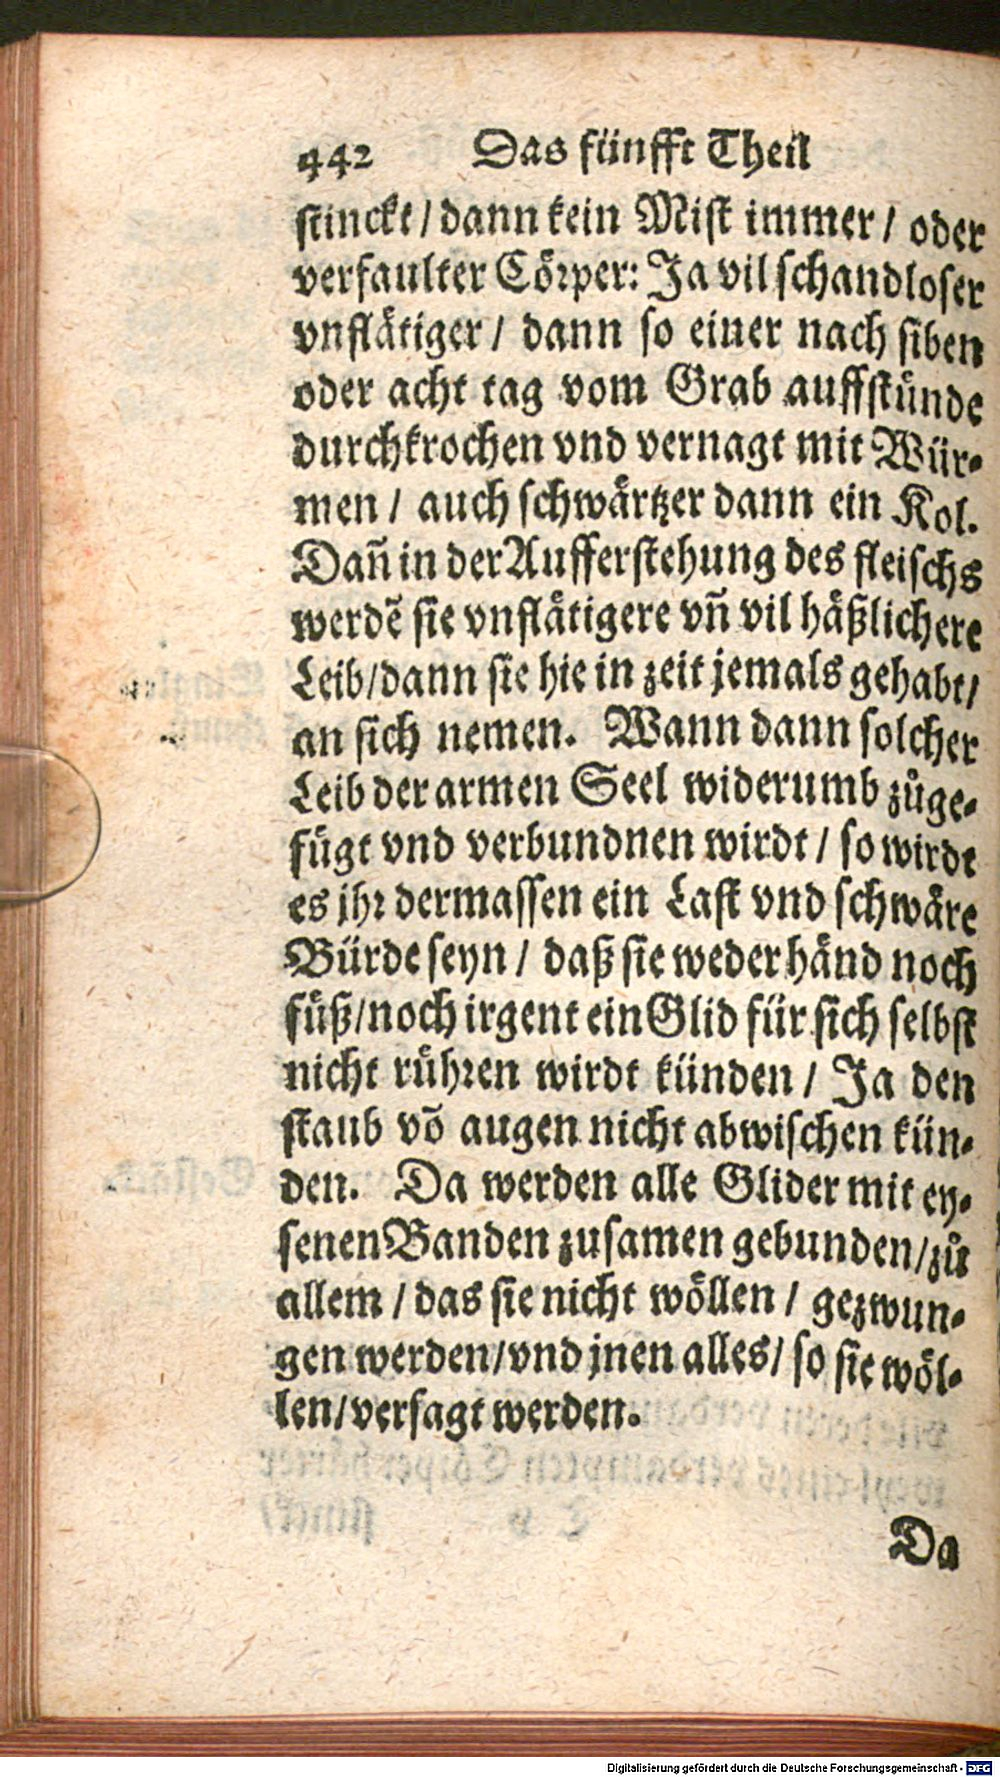 442 Das fünfft Theil
stinckt / dann kein Mist immer / oder
verfaulter Cörper: Ja vil schandloser
vnflåtiger / dann so einer nach siben
oder acht tag vom Grab auffstünde
durchkrochen vnd vernagt mit Wür-
men / auch schwårtzer dann ein Kol.
Dañ in der Aufferstehung des fleischs
werdẽ sie vnflåtigere vñ vil håßlichere
Leib / dann sie hie in zeit jemals gehabt /
an sich nemen. Wann dann solcher
Leib der armen Seel widerumb zůge-
fügt vnd verbundnen wirdt / so wirdt
es jhr dermassen ein Last vnd schwåre
Bürde seyn / daß sie weder hånd noch
füß / noch irgent ein Glid für sich selbst
nicht rühren wirdt künden / Ja den
staub võ augen nicht abwischen kün-
den. Da werden alle Glider mit ey-
senen Banden zusamen gebunden / zů
allem / das sie nicht wöllen / gezwun-
gen werden / vnd jnen alles / so sie wöl-
len / versagt werden.
Da
Digitalisierung gefördert durch die Deutsche Forschungsgemeinschaft - DFG